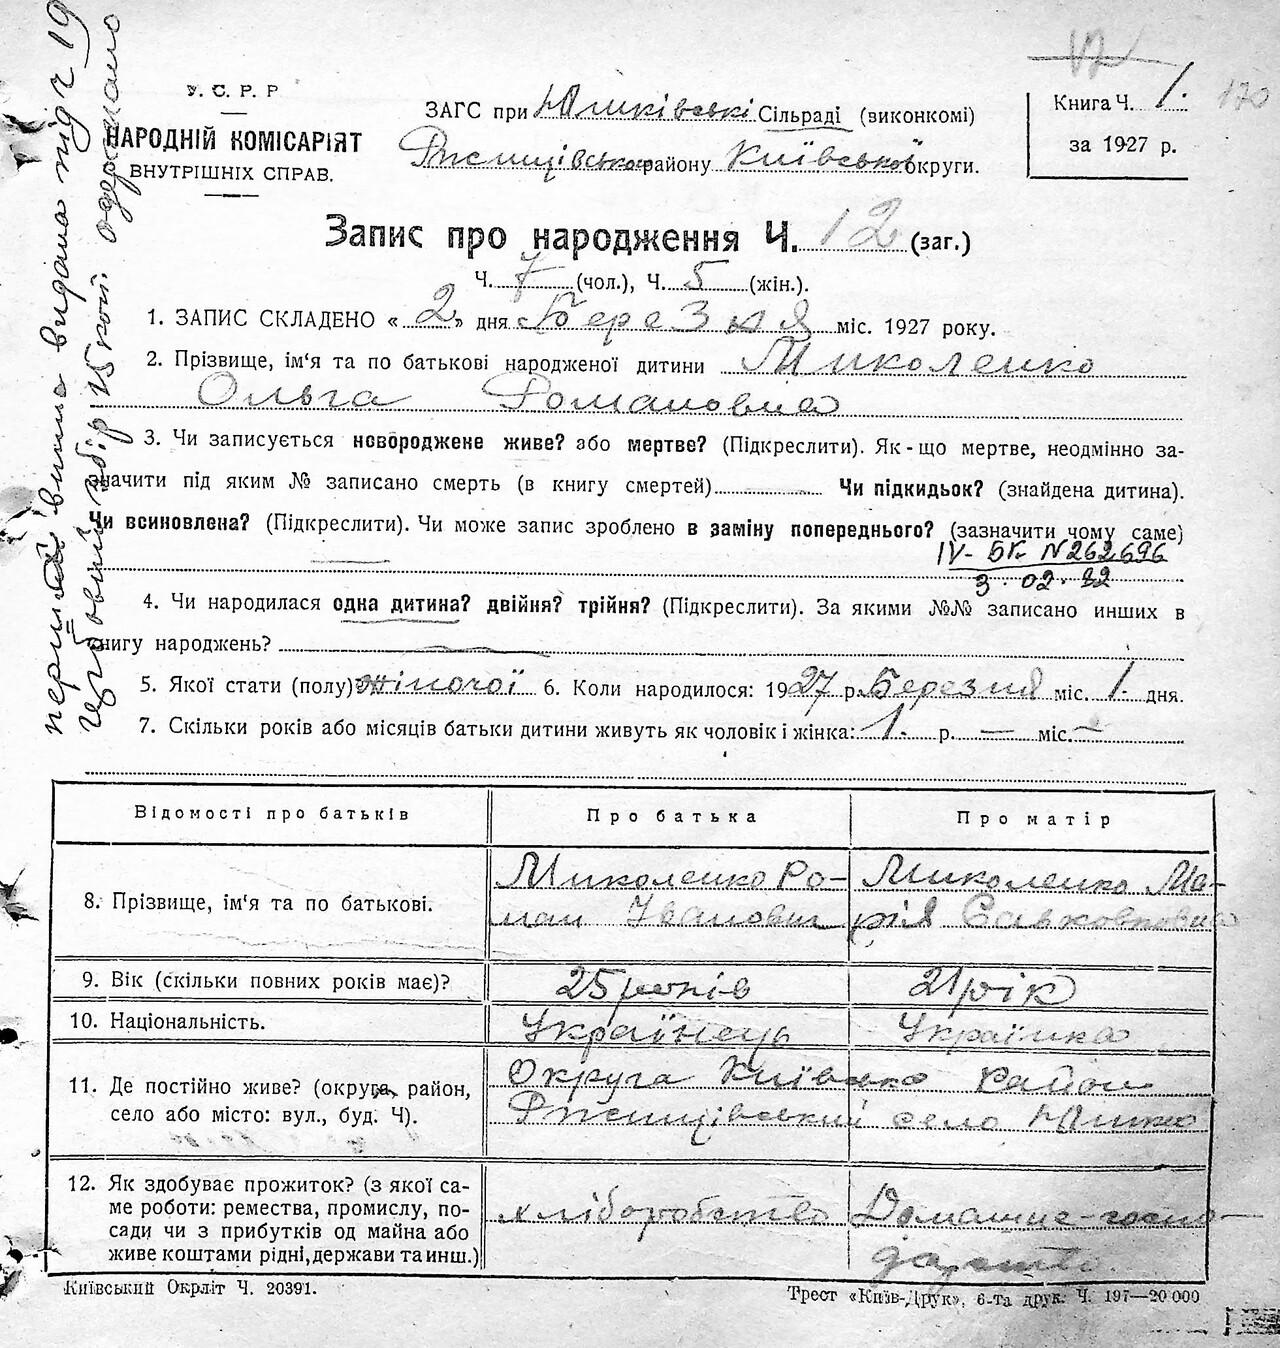 У. С. Р. Р
НАРОДНІЙ КОМІСАРІЯТ
ВНУТРІШНІХ СПРАВ.
ЗАГС при Юшківські Сільраді (виконкомі)
Ржищівського району Київської округи.
Книга Ч. 1.
за 1927 р.
170
Запис про народження Ч. 12 (заг.)
Ч. 7 (чол.), Ч. 5 (жін.).
1. ЗАПИС СКЛАДЕНО « 2 » дня Березня міс. 1927 року.
2. Прізвище, ім'я та по батькові народженої дитини Миколенко
Ольга Романовна
3. Чи записується новороджене живе? або мертве? (Підкреслити). Як-що мертве, неодмінно за-
значити під яким № записано смерть (в книгу смертей) Чи підкидьок? (знайдена дитина).
Чи всиновлена? (Підкреслити). Чи може запис зроблено в заміну попереднього? (зазначити чому саме)
IV-БК N262696
3.02.82
4. Чи народилася одна дитина? двійня? трійня? (Підкреслити). За якими №№ записано инших в
книгу народжень?
5. Якої стати (полу) жіночої 6. Коли народилося: 1927 р. Березня міс. 1. дня.
7. Скільки років або місяців батьки дитини живуть як чоловік і жінка: 1. р. — міс. –
Відомості про батьків Про батька Про матір
8. Прізвище, ім'я та по батькові. Миколенко Ро- Миколенко Ма-
ман Іванович рія Савковна
9. Вік (скільки повних років має)? 25 років 21 рік
10. Національність. Українець Українка
11. Де постійно живе? (округа, район, Округа Київська Район
село або місто: вул., буд. Ч). Ржищівський село Юшки
12. Як здобуває прожиток? (з якої са-
ме роботи: ремества, промислу, по- хліборобство Домашне-госпо-
сади чи з прибутків од майна або
живе коштами рідні, держави та инш.) дарство.
Київський Окрліт Ч. 20391.
Трест «Київ-Друк», 6-та друк. Ч. 197—20 000
видана під ч 19
гербовий збір 15 коп. одержано